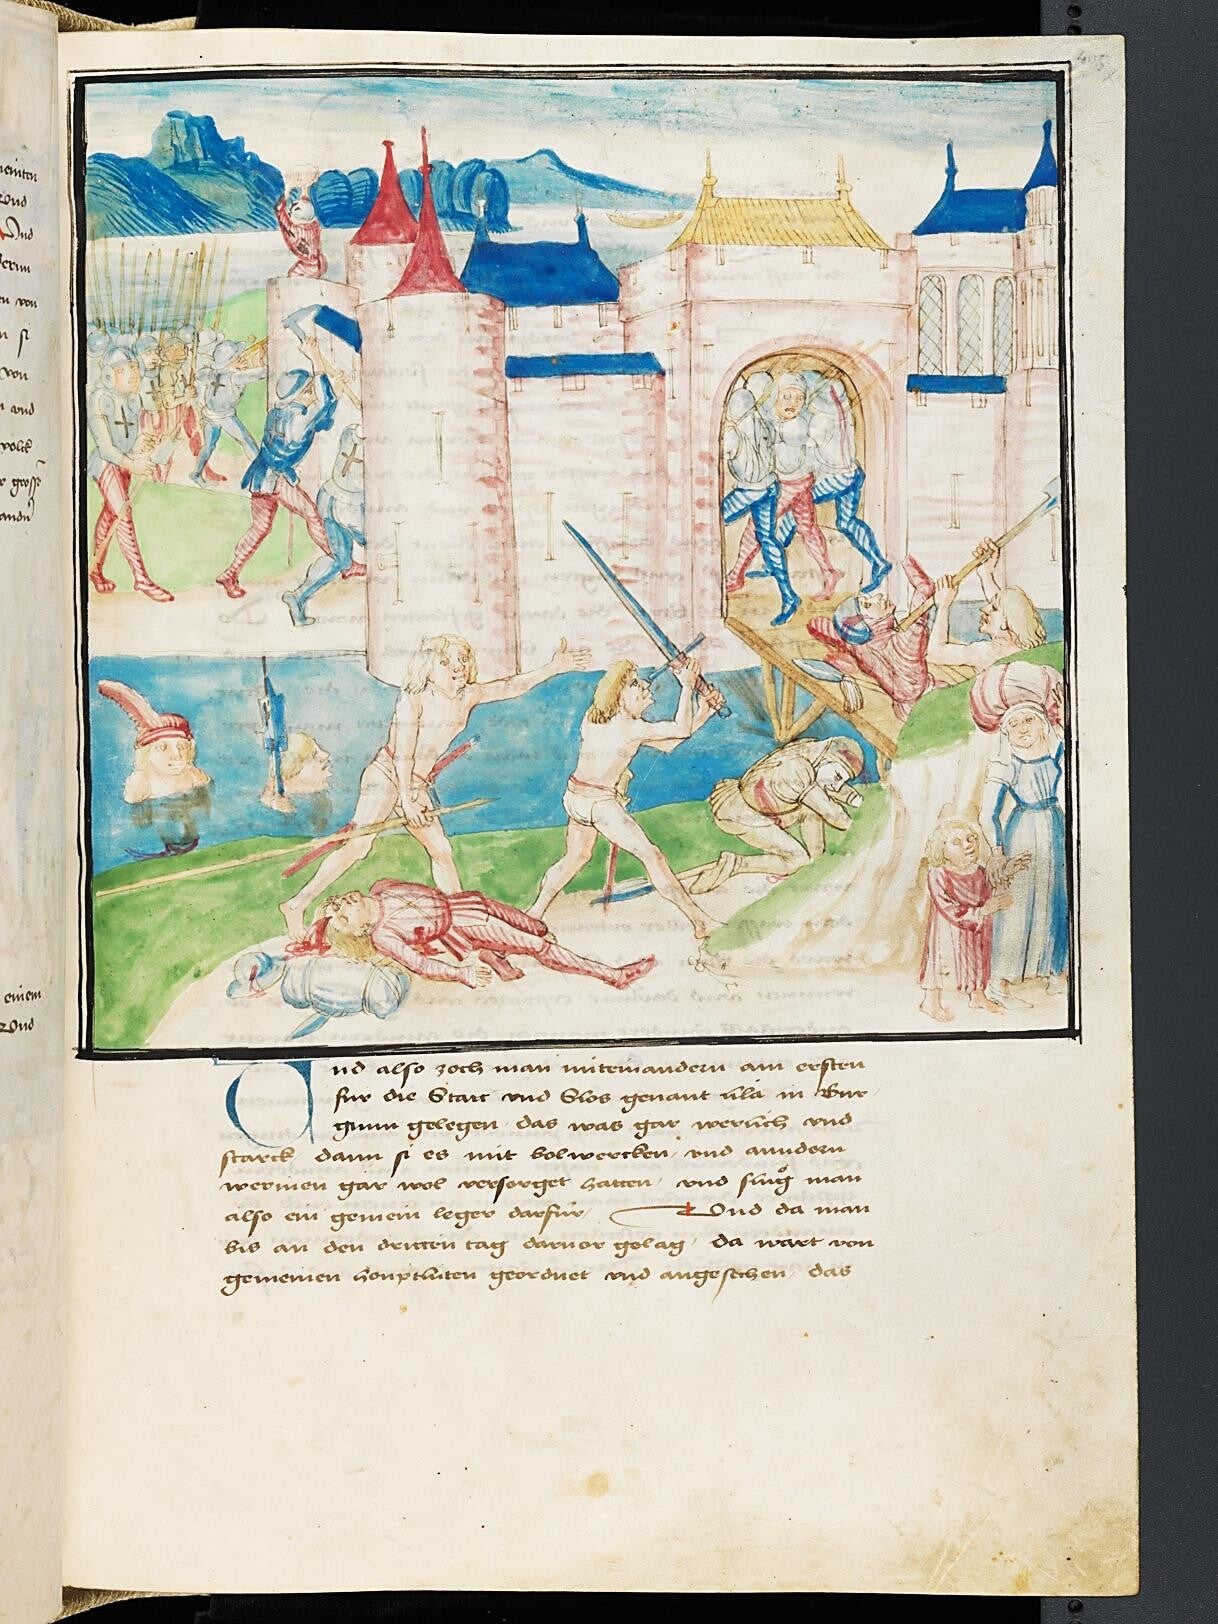 405
meinten
vnd
Vnd
von
si
von
vnd
volck
grosse
einem
vnd
Und also zoch man miteinandern am ersten
für die Statt vnd Slos genant in Bur
gunn gelegen, das was gar werlich vnd
starck dann si es mit bolwercken, vnd anndern
werinen gar wol versorget hatten, vnd slůg man
also ein gemein leger darfür, Vnd da man
bis an den dritten tag daruor gelag, da wart von
gemeinen houptlüten geordnet vnd angesechen, das